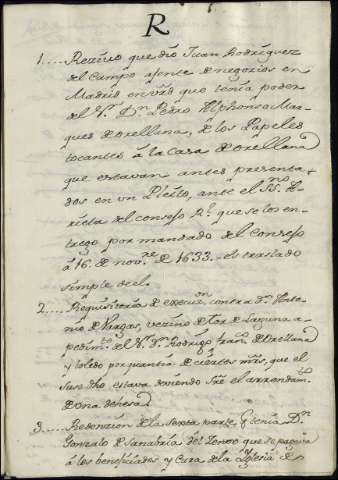 R
1.... Rezivo que dio Juan Rodriguez
del Campo ajente de negozios en
Madrid que tenia poder
del Sr. Dn. Pedro Alphonso Mar-
ques de orellana, de los Papeles
tocantes á la Casa de orellana
que estavan antes presenta-
dos en un Pleito, ante el
del consejo Rl. que se los en-
trego por mandado del Consejo
á 16 de nove. de 1633. es traslado
simple de el.
2.... Requisitoria de execuon. contra Dn. Anto-
nio de Vargas, vezino de Tor de Laguna a
pedimto. del Sr. Dn. Rodrigo de orellana
y toledo por quantia de ciertos mrs, que el
suso dho, estava deviendo sre el arrendamto.
de una dehesa
3.... Redenzion de la sexta parte, tenia Dn.
Gonzalo de Sanabria del Zenso que se pagava
á los benefiziados y Cura de la Yglesia de